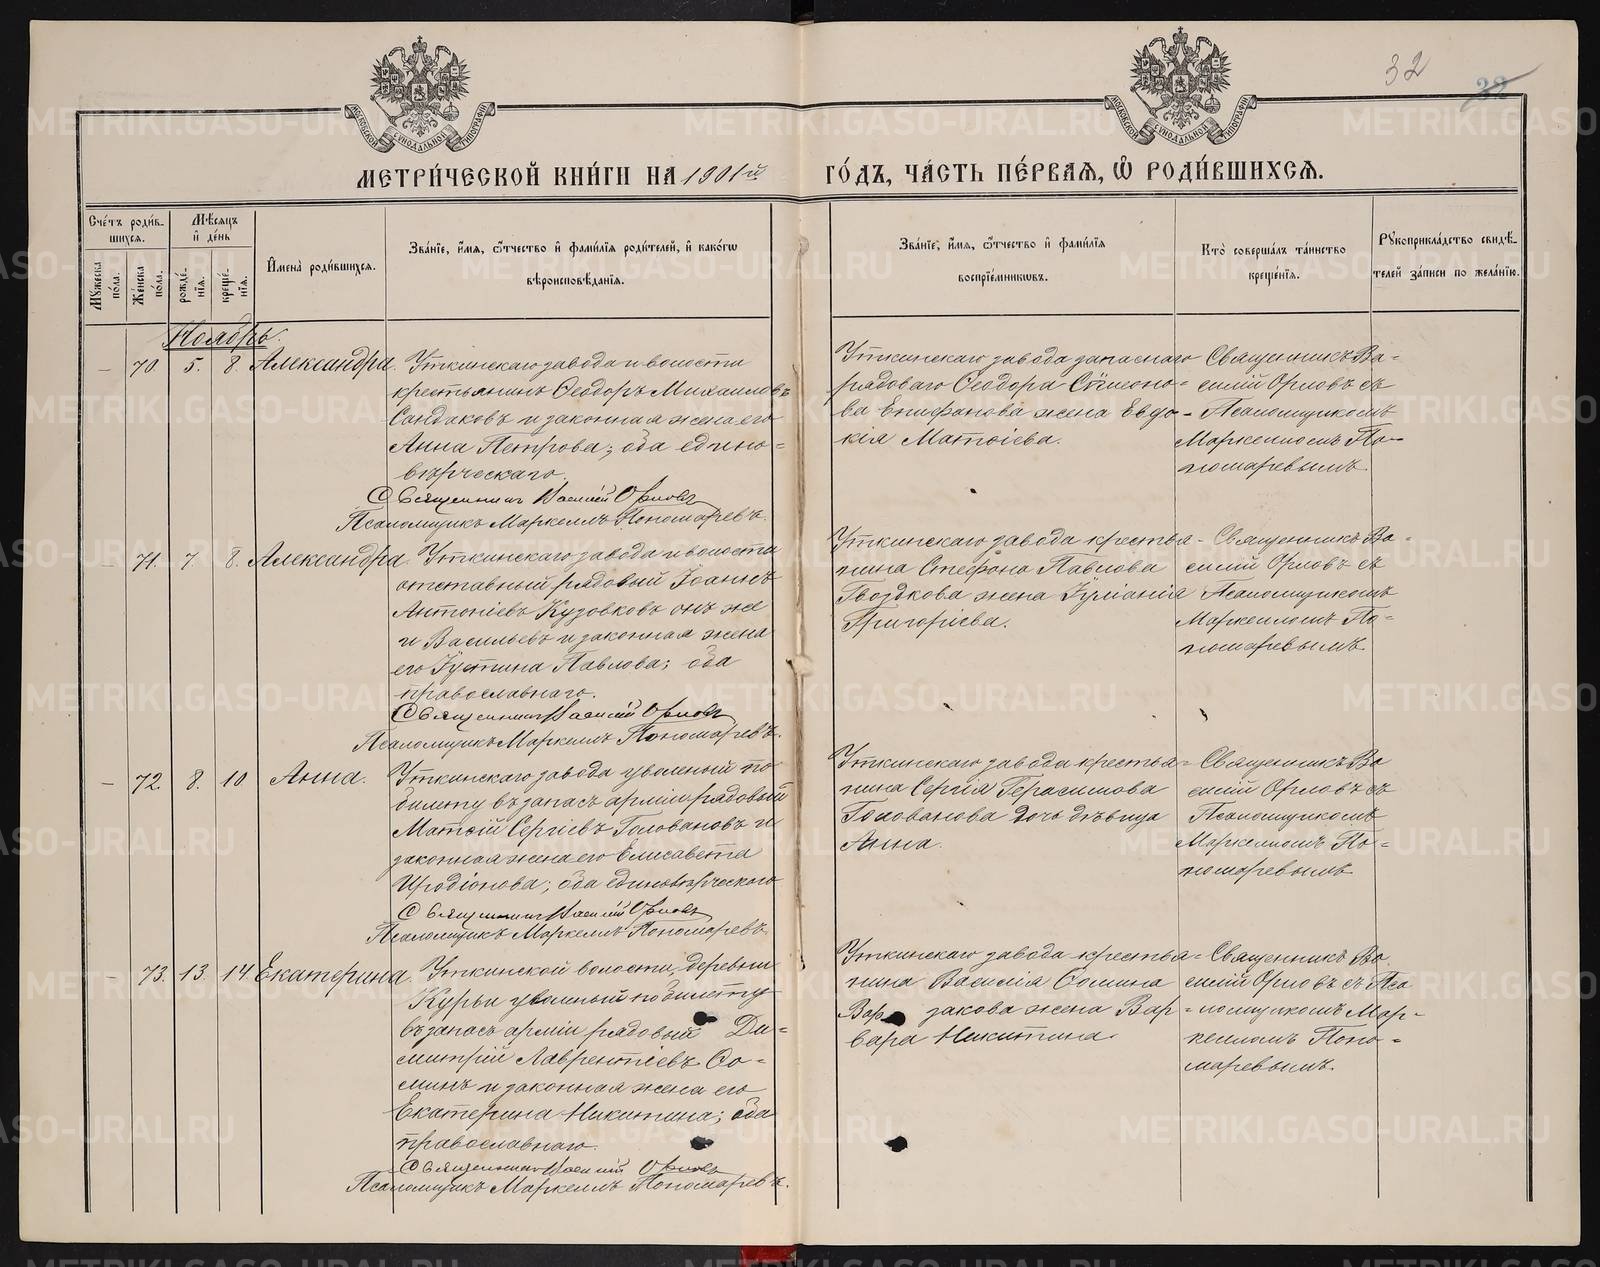 32
МОСКОВСКОЙ СѴНОДАЛЬНОЙ ТИПОГРАФІИ
МОСКОВСКОЙ СѴНОДАЛЬНОЙ ТИПОГРАФІИ
МЕТРИ́ЧЕСКОЙ КНИ́ГИ НА 1901й ГО́ДЪ, ЧА́СТЬ ПЕ́РВАѦ, Ѡ҆ РОДИ́ВШИХСѦ.
Сче́тъ роди́в-
шихсѧ.
Мѣ́сѧцъ
и҆ де́нь
Мꙋ́жеска по́ла.
Же́нска по́ла.
рожде́-
нїѧ.
креще́-
нїѧ.
И҆мена̀ роди́вшихсѧ.
Зва́нїе, и҆́мѧ, ѻ҆́тчество и҆ фами́лїѧ роди́телей, и҆ како́гѡ
вѣроисповѣ́данїѧ.
Зва́нїе, и҆́мѧ, ѻ҆́тчество и҆ фами́лїѧ
воспрїе́мникѡвъ.
Кто̀ соверша́лъ та́инство
креще́нїѧ.
Рꙋкоприкла́дство свидѣ́-
телей за́писи по жела́нїю.
Ноябрь.
– 70. 5. 8. Александра.
Уткинскаго завода и волости
крестьянинъ Ѳеодоръ Михаиловъ
Сандаковъ и законная жена его
Анна Петрова; оба едино-
вѣрческаго.
Священникъ Василій Орловъ
Псаломщикъ Маркеллъ Пономаревъ.
Уткинскаго завода запаснаго
рядоваго Ѳеодора Сѵмеоно-
ва Епифанова жена Евдо-
кія Матѳіева.
Священникъ Ва-
силій Орловъ съ
Псаломщикомъ
Маркелломъ По-
номаревымъ.
– 71. 7. 8. Александра.
Уткинскаго завода и волости
отставный рядовый Іоаннъ
Антоніевъ Кузовковъ онъ же
и Васильевъ и законная жена
его Іустина Павлова; оба
православнаго.
Священникъ Василій Орловъ
Псаломщикъ Маркеллъ Пономаревъ.
Уткинскаго завода крестья-
нина Стефана Павлова
Гвоздкова жена Іуліанія
Григоріева.
Священникъ Ва-
силій Орловъ съ
Псаломщикомъ
Маркелломъ По-
номаревымъ.
– 72. 8. 10 Анна.
Уткинскаго завода уволеный по
билету въ запасъ арміи рядовый
Матѳій Сергіевъ Головановъ и
законная жена его Елисавета
Иродіонова; оба единовѣрческаго
Священникъ Василій Орловъ
Псаломщикъ Маркеллъ Пономаревъ.
Уткинскаго завода крестья-
нина Сергія Герасимова
Голованова дочь дѣвица
Анна.
Священникъ Ва
силій Орловъ съ
Псаломщикомъ
Маркелломъ По-
номаревымъ
– 73. 13. 14. Екатерина.
Уткинской волости, деревни
Курьи уволеный по билету
въ запасъ арміи рядовый Ди-
митрій Лаврентіевъ Со-
минъ и законная жена его
Екатерина Никитина; оба
православнаго.
Священникъ Василій Орловъ
Псаломщикъ Маркеллъ Пономаревъ.
Уткинскаго завода крестья-
нина Василія Сомина
жена Вар-
вара Никитина.
Священникъ Ва
силій Орловъ съ Пса
ломщикомъ Мар-
келломъ Поно-
маревымъ.
METRIKI.GASO-URAL.RU